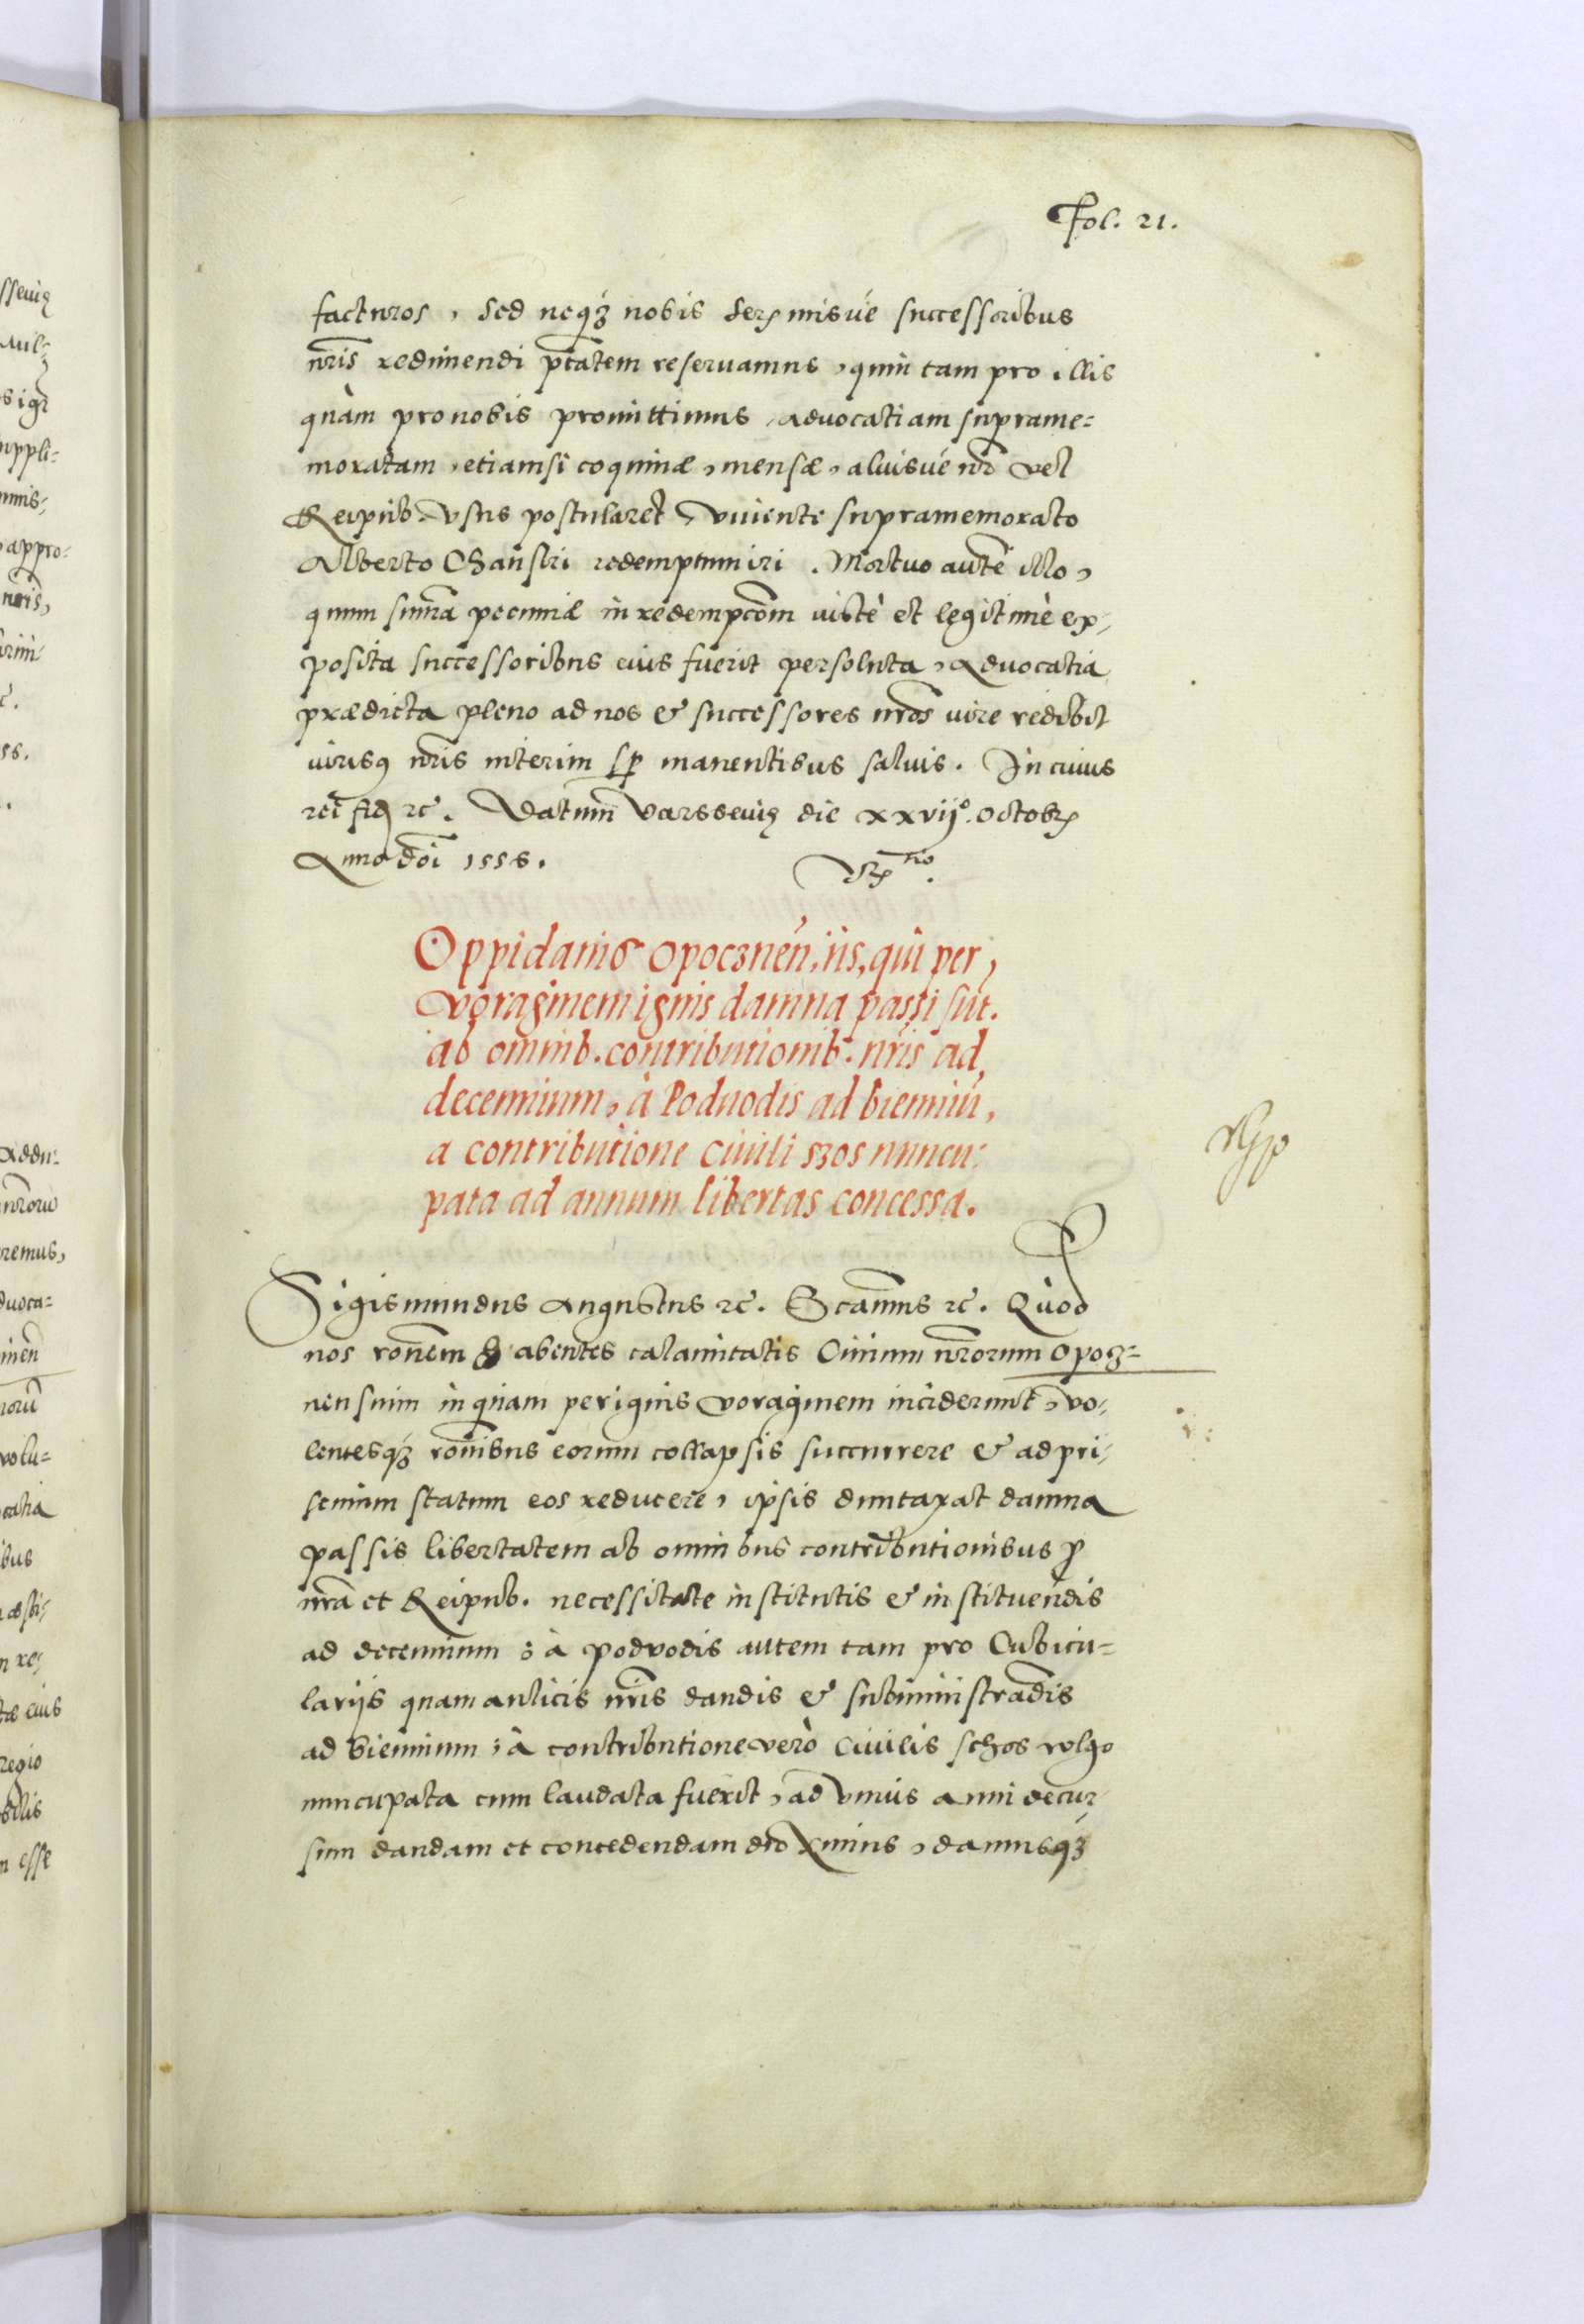 Fol. 21.
facturos, sed neq₃ nobis Ser͞misvé successoribus
nr͞is redimendi p͞tatem reservamus, quin tam pro illis
quàm pro nobis promittimus, advocatiam suprame=
moratam, etiamsi coquinæ, mensæ, alvisvé nr͞o vel
Reipub. usus postularet, vivente supramemorato
Alberto Chanski redemptum iri. Mortuo aut͞e illo,
quum sum͞a pecuniæ in redempco͞m iustè et legitimè ex-
posita successoribus eius fuerit persoluta, Advocatia
prædicta pleno ad nos & successores nr͞os iure redibit
iurisq nr͞is interim sp͞ manentibus salvis. In cuius
rei fid ꝛc. Datum Varsseviꝫ die xxvij°. Octobr
Anno do͞i 1556.
Oppidanis Opocznen͞, iis, qui per
voraginem ignis damna passi su͞t.
ab omnib. contributionib. nr͞is ad
decennium, à Podvodis ad bienniu͞,
a contributione civili szos nuncu:
pata ad annum libertas concessa.
Sigismundus Augustus ꝛc. Sca͞mus ꝛc. Quod
nos ro͞nem habentes calamitatis Civium nr͞orum Opocz=
nensium in quam per ignis voraginem inciderunt, vo-
lentesq₃ ro͞nibus eorum collapsis succurrere & ad pri-
scnum statum eos reducere, ipsis duntaxat damna
passis libertatem ab omnibus contributionibus ꝓ
nr͞a et Reipub. necessitate institutis & instituendis
ad decennium: à podvodis autem tam pro Cubicu=
larijs quam aulicis nr͞is dandis & subministra͞dis
ad biennium: à contributione verò civilis schos vulgo
nuncupata cum laudata fuerit, ad unius anni decur-
sum dandam et concedendam duximus, damusq₃